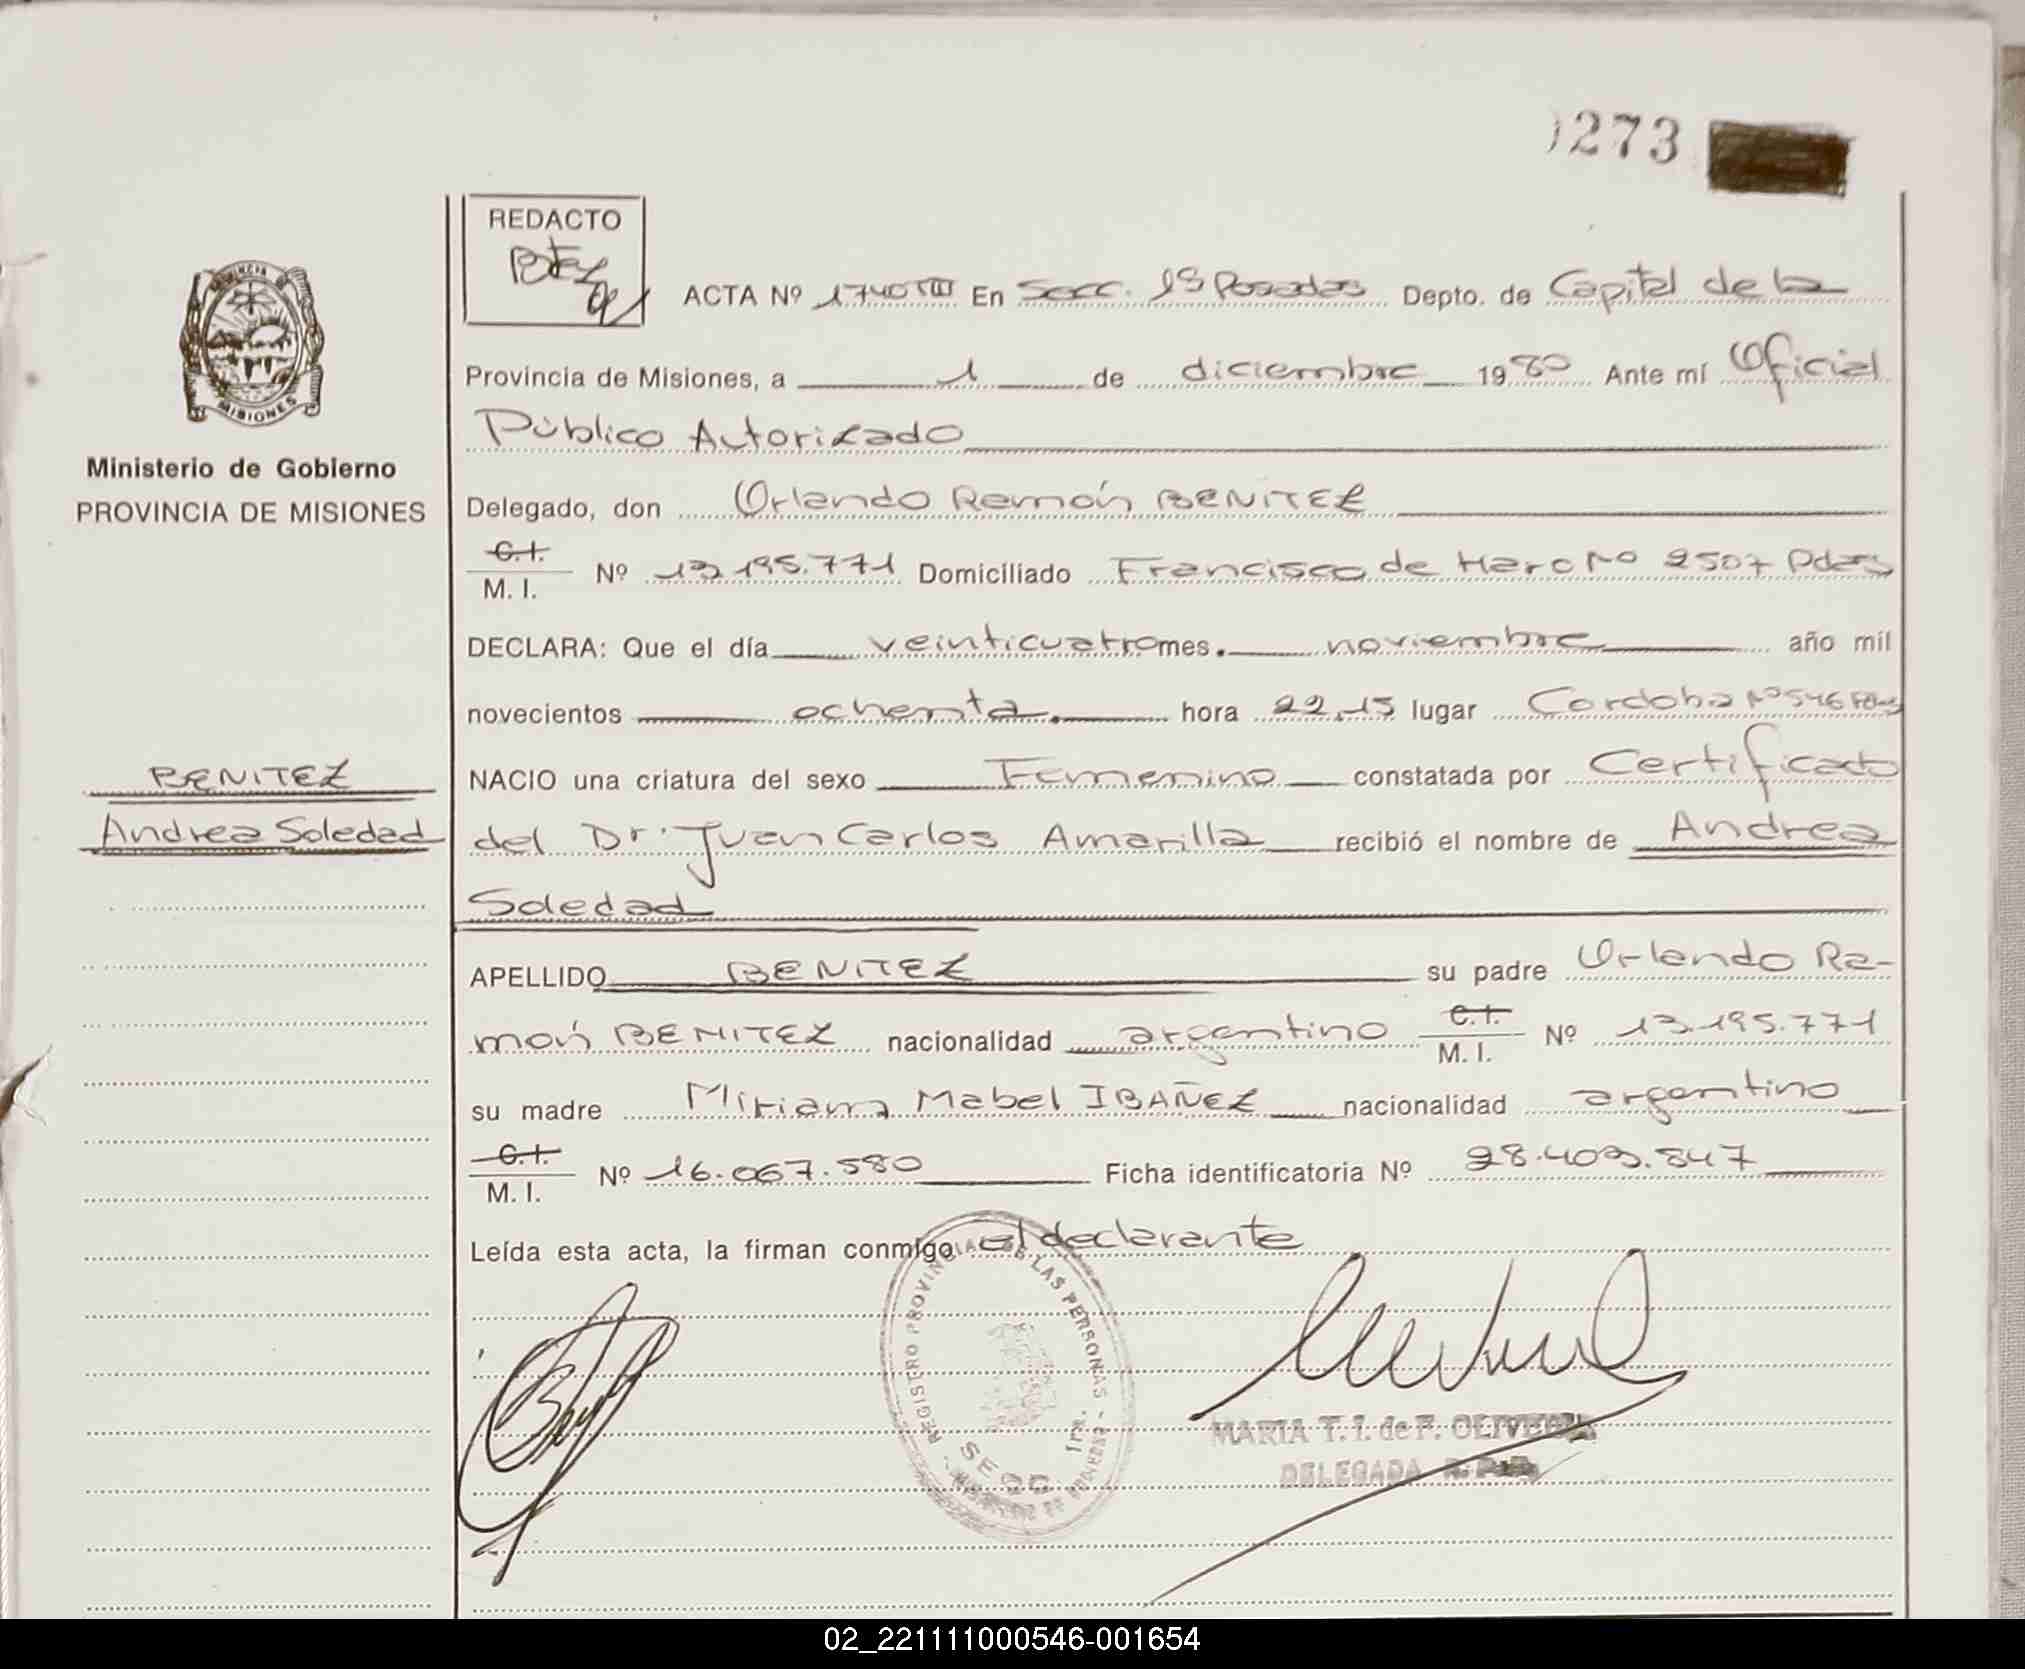 273
REDACTO
ACTA Nº 1740 VIII En Secc. 1ª Posadas Depto. de Capital de la
Provincia de Misiones, a 1 de diciembre 1980 Ante mí Oficial
Público Autorizado
Delegado, don Orlando Ramón BENITEZ
C.I.
M. I. Nº 13.195.771 Domiciliado Francisco de Haro Nº 2507 Pdas
DECLARA: Que el día veinticuatro mes. noviembre año mil
novecientos ochenta. hora 22,15 lugar Cordoba Nº 546 Pdas
NACIO una criatura del sexo Femenino constatada por Certificado
del Dr. Juan Carlos Amarilla recibió el nombre de Andrea
Soledad
APELLIDO BENITEZ su padre Orlando Ra-
món BENITEZ nacionalidad argentino C.I. M. I. Nº 13.195.771
su madre Miriam Mabel IBAÑEZ nacionalidad argentino
C.I.
M. I. Nº 16.067.580 Ficha identificatoria Nº 28.403.847
Leída esta acta, la firman conmigo el declarante
PROVINCIA DE MISIONES
Ministerio de Gobierno
PROVINCIA DE MISIONES
BENITEZ
Andrea Soledad
REGISTRO PROVINCIAL DE LAS PERSONAS
SECC. 1ra.
MARIA T. I. de F.
DELEGADA
02_221111000546-001654